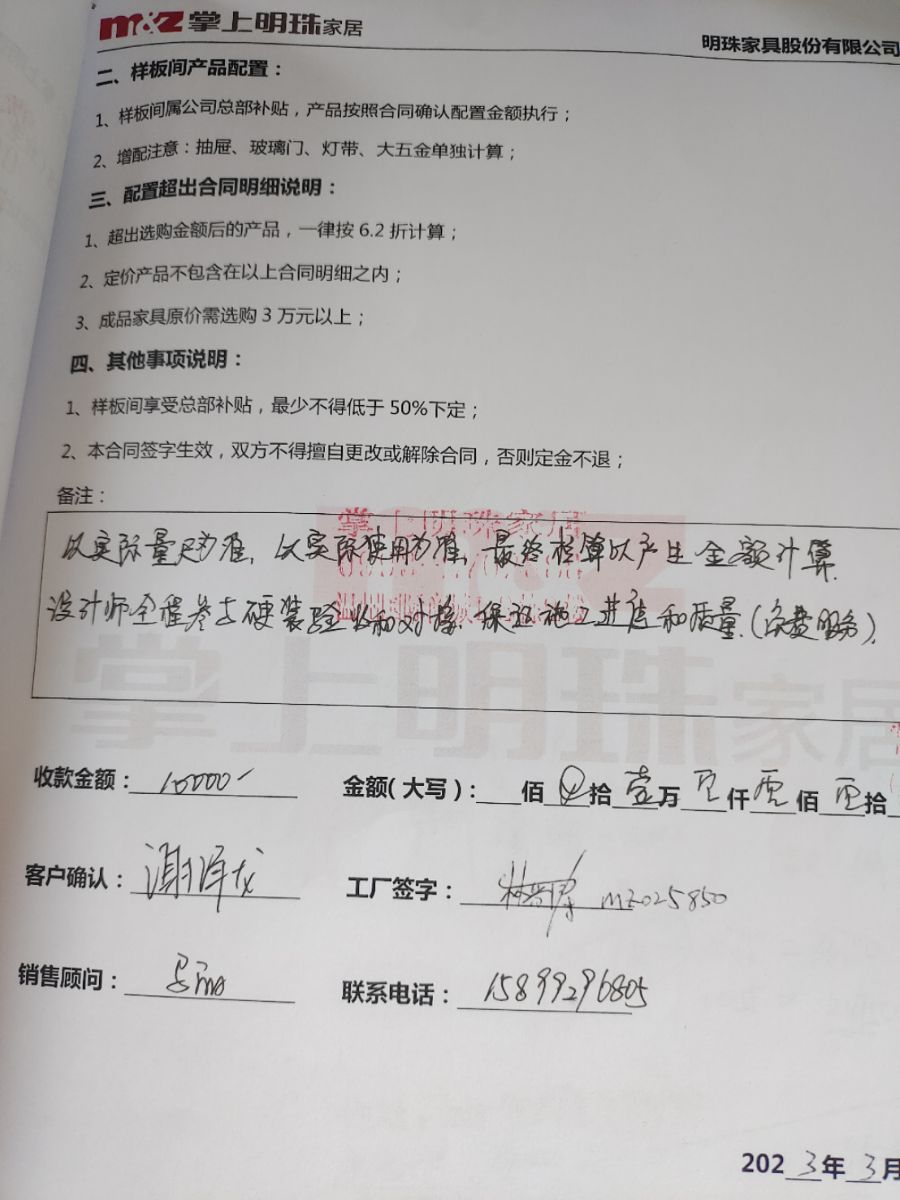 m&z 掌上明珠家居
明珠家具股份有限公司
二、样板间产品配置：
1、样板间属公司总部补贴，产品按照合同确认配置金额执行；
2、增配注意：抽屉、玻璃门、灯带、大五金单独计算；
三、配置超出合同明细说明：
1、超出选购金额后的产品，一律按 6.2 折计算；
2、定价产品不包含在以上合同明细之内；
3、成品家具原价需选购 3 万元以上；
四、其他事项说明：
1、样板间享受总部补贴，最少不得低于 50%下定；
2、本合同签字生效，双方不得擅自更改或解除合同，否则定金不退；
备注：
掌上明珠家居
以实际量尺为准，以实际使用为准，最终核算以产生金额计算.
设计师全程参与硬装验收和对接，保证施工进度和质量.(免费服务).
掌上明珠家居
收款金额： 10000- 金额( 大写 )： 佰 拾 壹 万 零 仟 零 佰 零 拾
客户确认： 谢泽龙 工厂签字： MZ025850
销售顾问： 联系电话： 15899296805
2023年3月